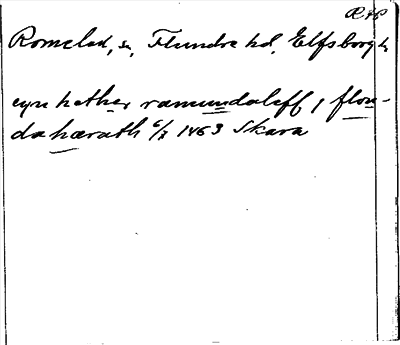 Romeled, sn, Flundre hd, Elfsborgs
eyn hether ramundaleff, j flon-
dahærath 6/7 1463 Skara